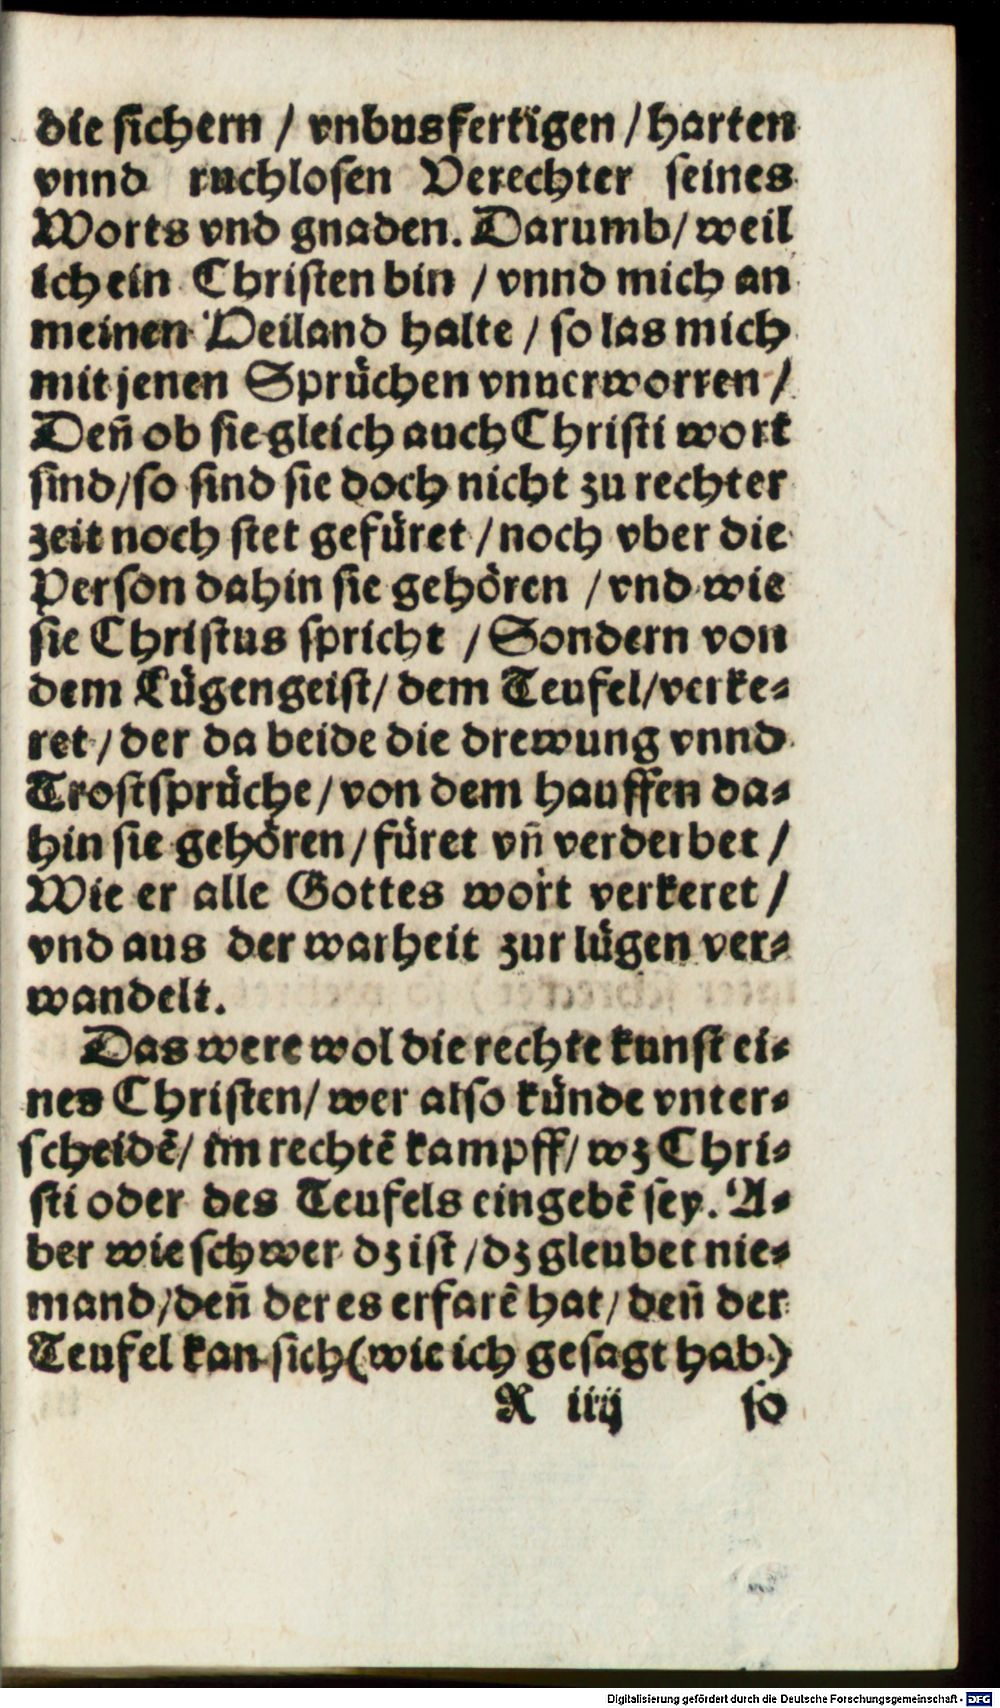 die sichern / vnbusfertigen / harten
vnnd ruchlosen Verechter seines
Worts vnd gnaden. Darumb / weil
ich ein Christen bin / vnnd mich an
meinen Heiland halte / so las mich
mit jenen Sprüchen vnuerworren /
Deñ ob sie gleich auch Christi wort
sind / so sind sie doch nicht zu rechter
zeit noch stet gefüret / noch vber die
Person dahin sie gehören / vnd wie
sie Christus spricht / Sondern von
dem Lügengeist / dem Teufel / verke⸗
ret / der da beide die drewung vnnd
Trostsprüche / von dem hauffen da⸗
hin sie gehören / füret vñ verderbet /
Wie er alle Gottes wort verkeret /
vnd aus der warheit zur lügen ver⸗
wandelt.
Das were wol die rechte kunst ei⸗
nes Christen / wer also künde vnter⸗
scheidẽ / im rechtẽ kampff / wz Chri⸗
sti oder des Teufels eingebẽ sey. A⸗
ber wie schwer dz ist / dz gleubet nie⸗
mand / deñ der es erfarẽ hat / deñ der
Teufel kan sich (wie ich gesagt hab)
R iiij so
Digitalisierung gefördert durch die Deutsche Forschungsgemeinschaft - DFG